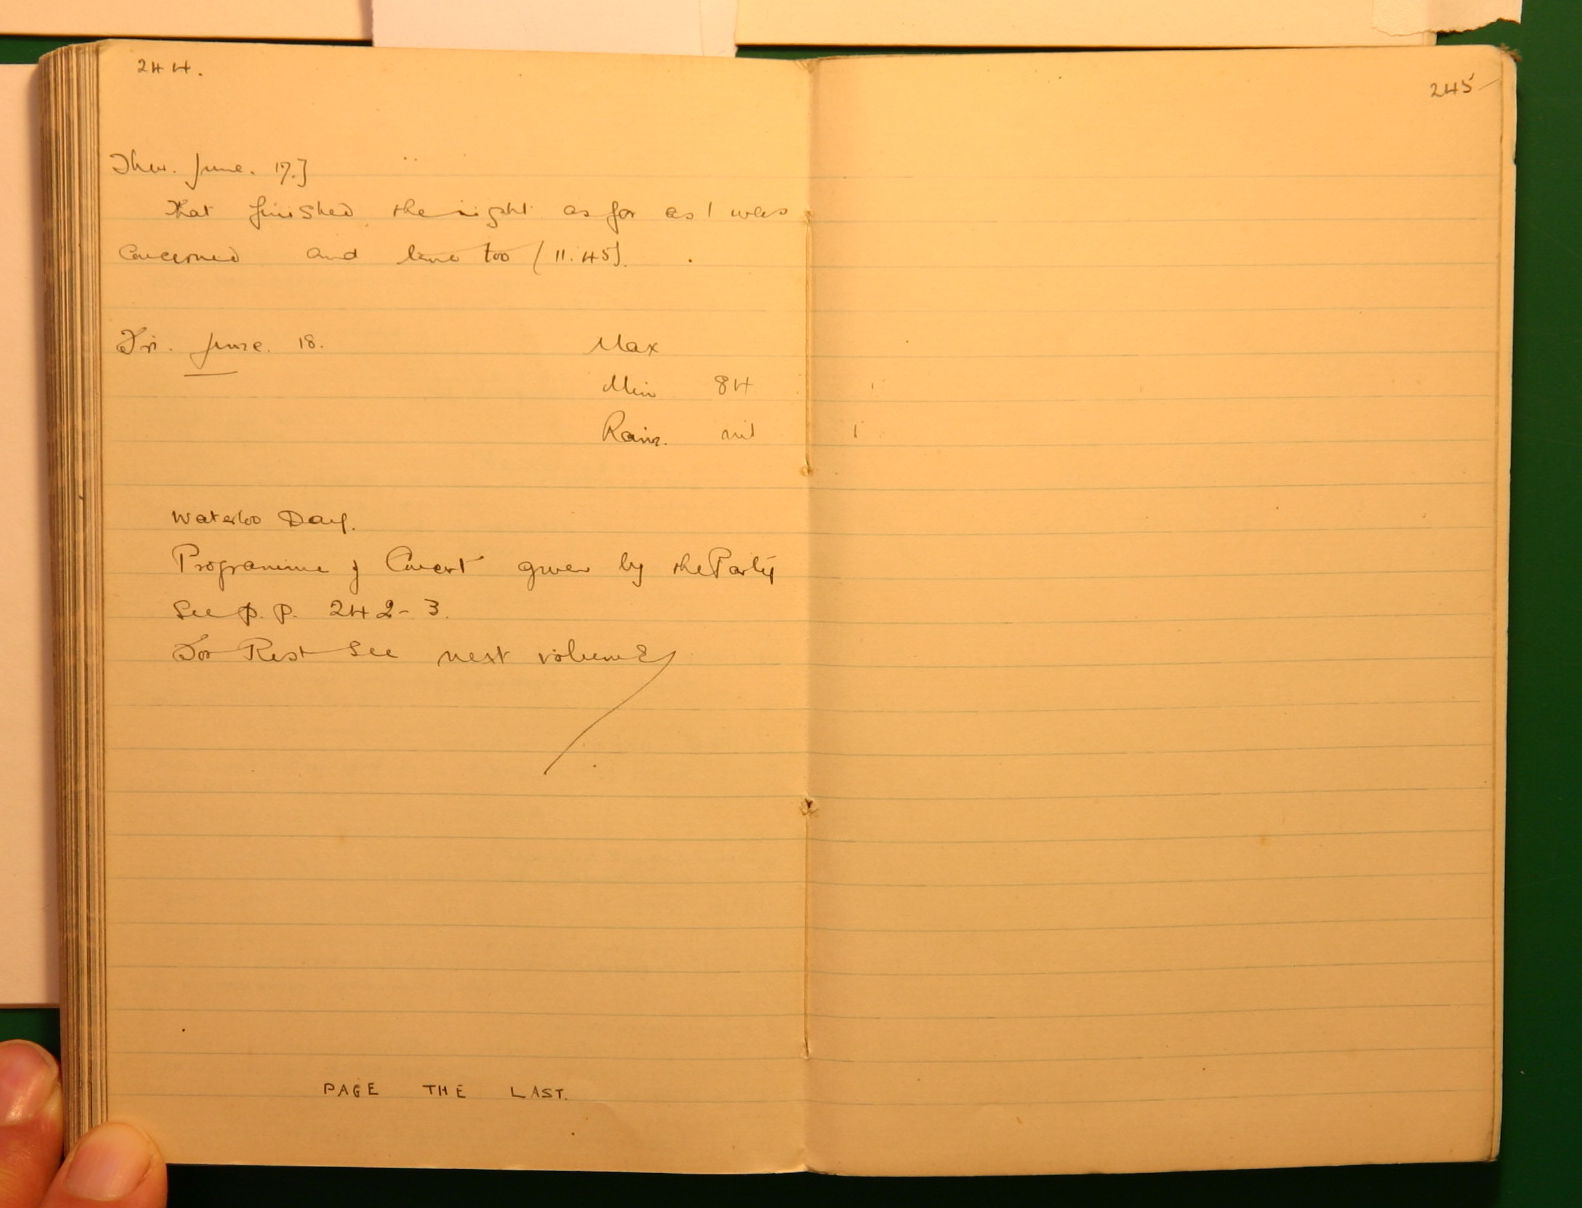 244.
245
Thur. June. 17.]
That finished the night as far as I was
concerned and time too (11.45].
Fri. June. 18. Max
Min 84
Rain. nil
Waterloo Day.
Programme of Concert given by the Party
See p.p. 242-3.
For Rest See next volume
PAGE THE LAST.